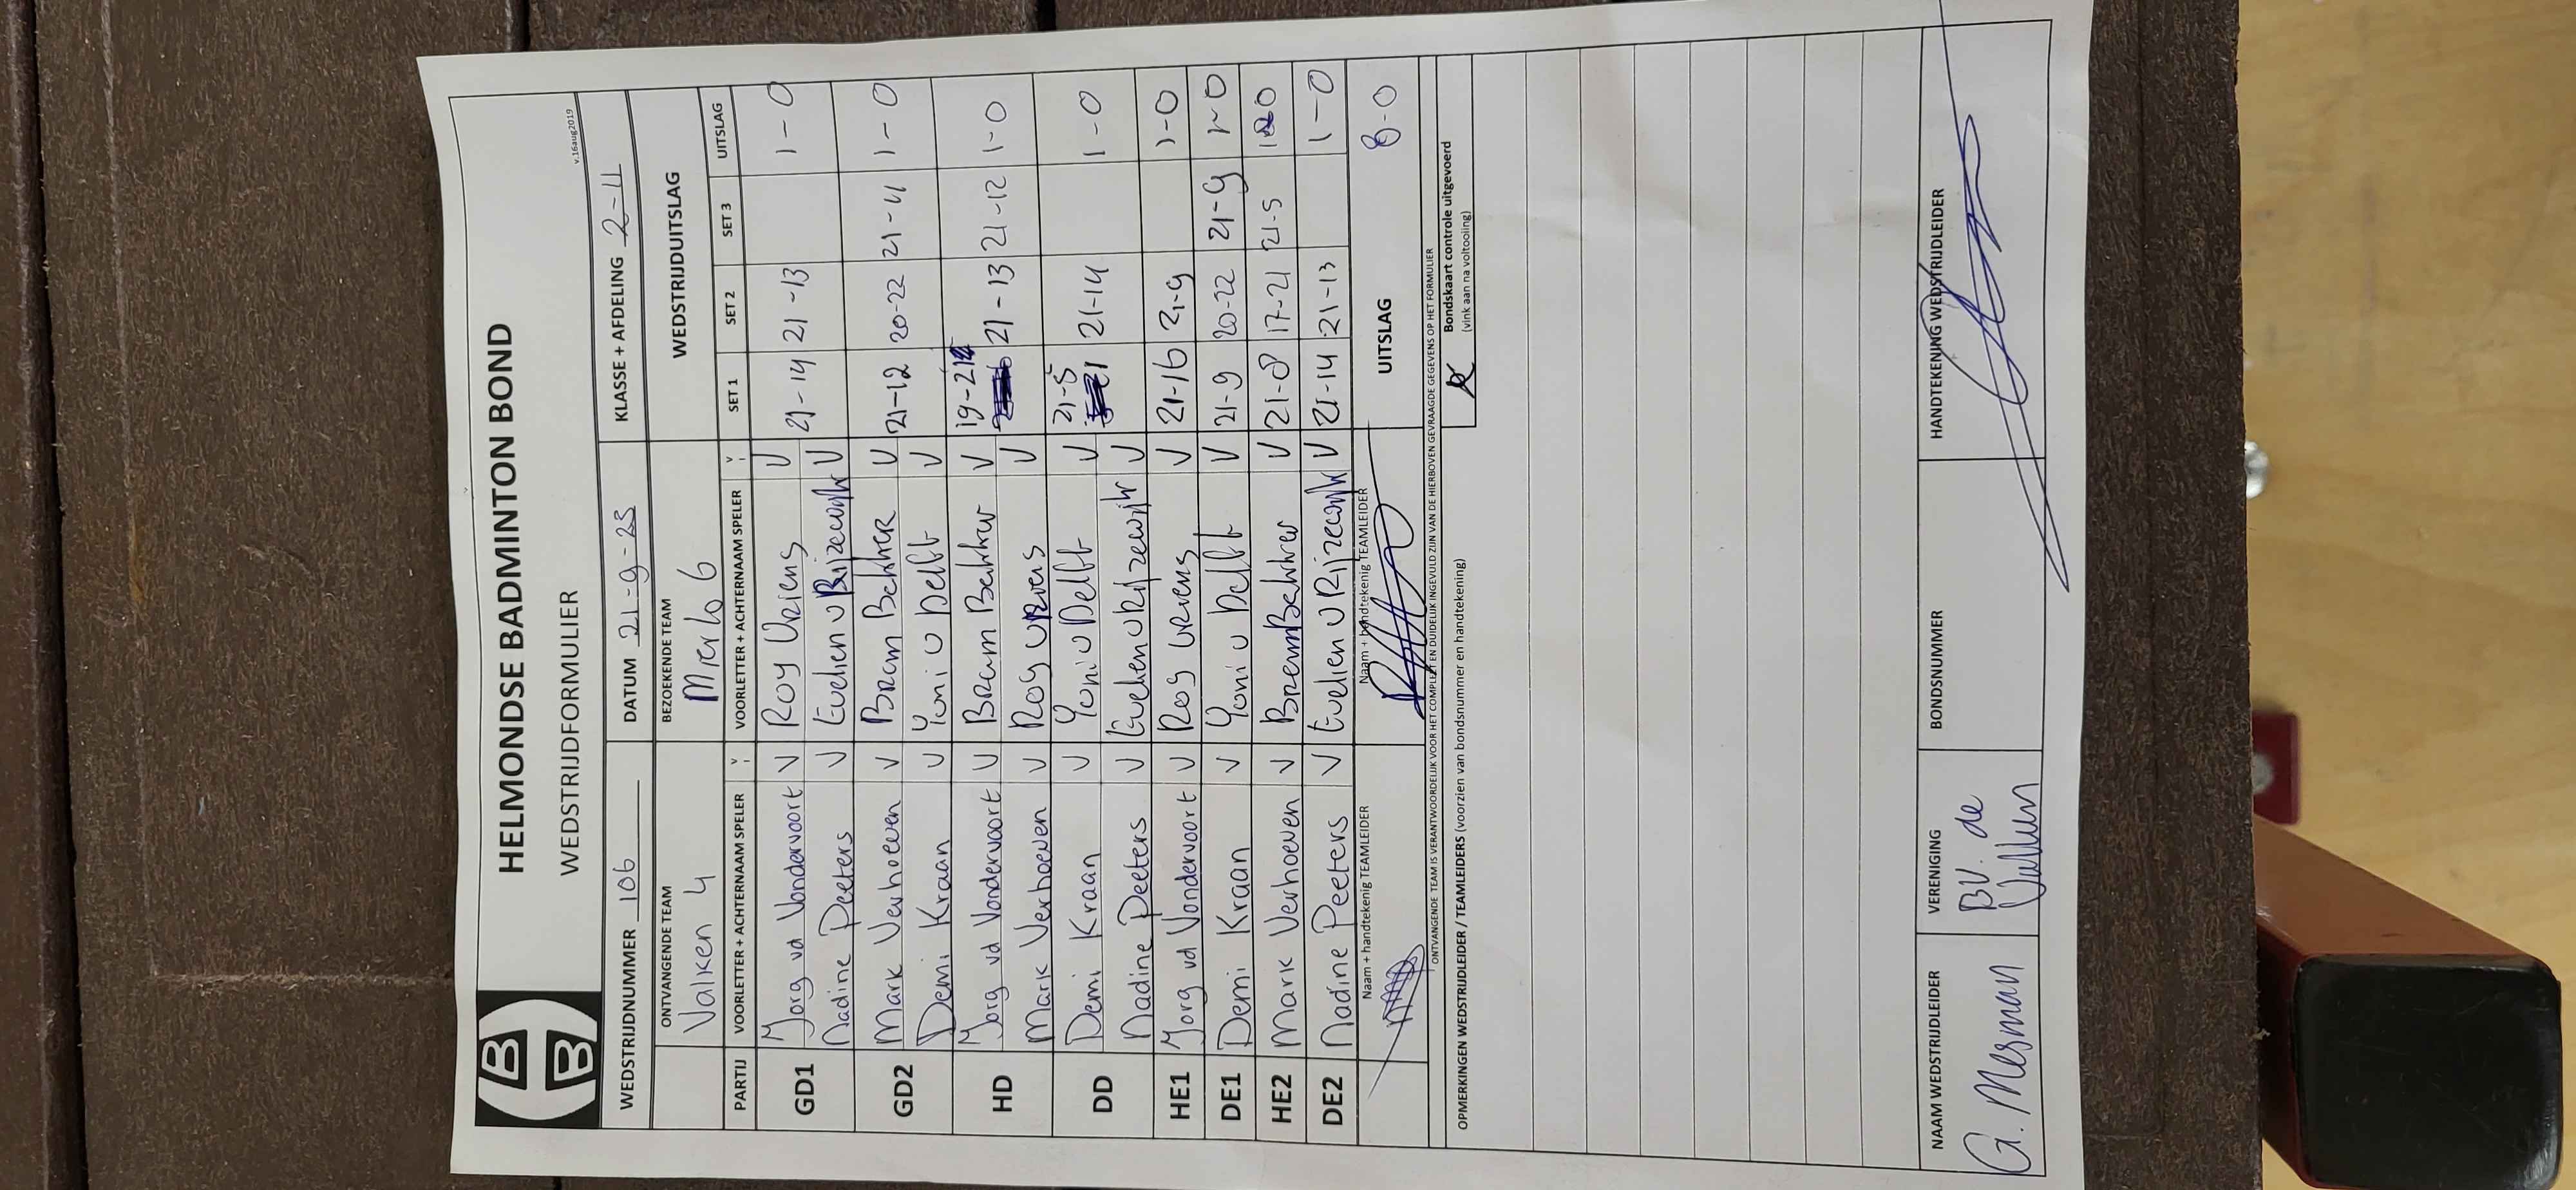 HELMONDSE BADMINTON BOND
WEDSTRIJDFORMULIER
v.16aug2019
WEDSTRIJDNUMMER 106 DATUM 21-9-23 KLASSE + AFDELING 2-11
ONTVANGENDE TEAM BEZOEKENDE TEAM WEDSTRIJDUITSLAG
Valken 4 Mierlo 6
PARTIJ VOORLETTER + ACHTERNAAM SPELER V VOORLETTER + ACHTERNAAM SPELER V SET 1 SET 2 SET 3 UITSLAG
GD1 Jorg vd Vondervoort V Roy Vriens V 21-14 21-13 1-0
Nadine Peeters V Evelien v Rijzewijk V
GD2 Mark Verhoeven V Bram Bekker V 21-12 20-22 21-11 1-0
Demi Kraan V Yoni v Delft V
HD Jorg vd Vondervoort V Bram V 19-21 21-13 21-12 1-0
Mark Verhoeven V Roy Vriens V
DD Demi Kraan V Yoni v Delft V 21-5 21-14 1-0
Nadine Peeters V Evelien v Rijzewijk V
HE1 Jorg vd Vondervoort V Roy Vriens V 21-16 21-9 1-0
DE1 Demi Kraan V Yoni v Delft V 21-9 20-22 21-9 1-0
HE2 Mark Verhoeven V Bram V 21-8 17-21 21-5 1-0
DE2 Nadine Peeters V Evelien v Rijzewijk V 21-14 21-13 1-0
Naam + handtekenig TEAMLEIDER Naam + handtekenig TEAMLEIDER UITSLAG 8-0
ONTVANGENDE TEAM IS VERANTWOORDELIJK VOOR HET COMPLEET EN DUIDELIJK INGEVULD ZIJN VAN DE HIERBOVEN GEVRAAGDE GEGEVENS OP HET FORMULIER
Bondskaart controle uitgevoerd
(vink aan na voltooiing)
OPMERKINGEN WEDSTRIJDLEIDER / TEAMLEIDERS (voorzien van bondsnummer en handtekening)
NAAM WEDSTRIJDLEIDER VERENIGING BONDSNUMMER HANDTEKENING WEDSTRIJDLEIDER
G. Mesman BV. de
Valken